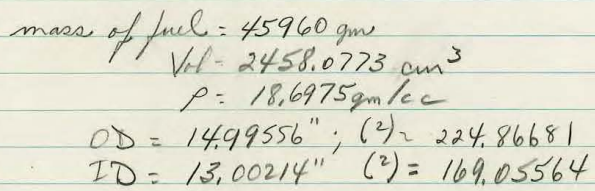 mass of fuel = 45960 gm
Vol = 2458.0773 cm³
ρ = 18.6975 gm/cc
OD = 14.99556" ; (²) = 224.86681
ID = 13.00214" (²) = 169.05564